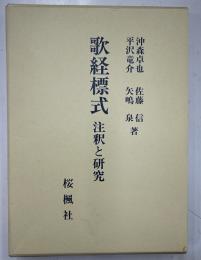 沖森卓也 佐藤 信
平沢竜介 矢嶋 泉 著
歌経標式 注釈と研究
桜楓社